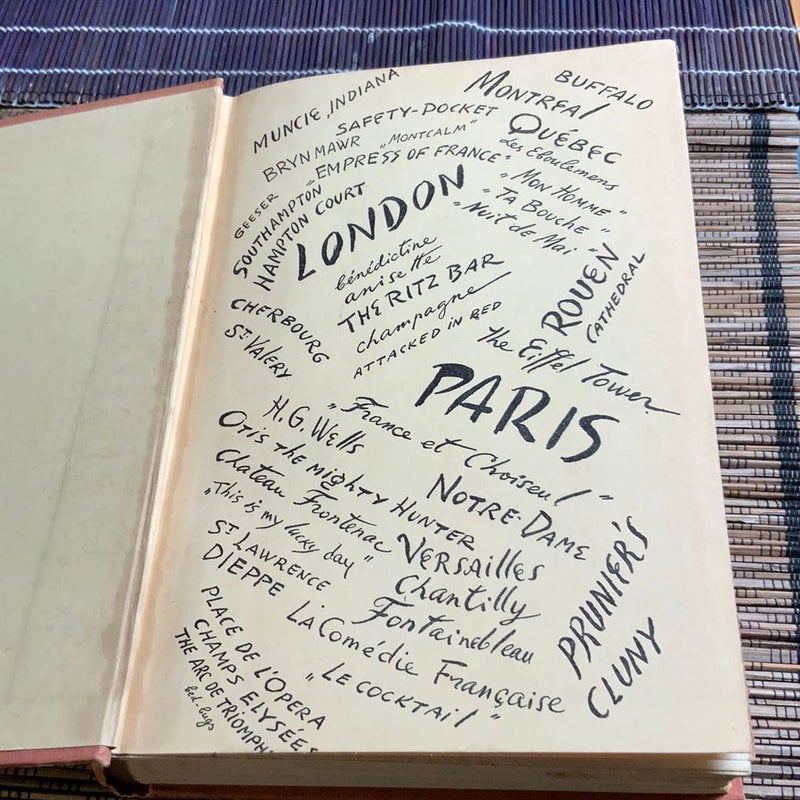 MUNCIE, INDIANA
BUFFALO
MONTREAL
SAFETY-POCKET
QUÉBEC
BRYN MAWR
„MONTCALM"
Les Eboulemens
„EMPRESS OF FRANCE"
„MON HOMME"
GEESER
SOUTHAMPTON
HAMPTON COURT
„TA BOUCHE"
„Nuit de Mai"
LONDON
bénédictine
anisette
THE RITZ BAR
champagne
ATTACKED IN BED
ROUEN
CATHEDRAL
CHERBOURG
ST VALERY
the Eiffel Tower
PARIS
„France et Choiseul"
H.G. WELLS
OTIS THE MIGHTY HUNTER
Chateau Frontenac
NOTRE-DAME
„This is my lucky day"
VERSAILLES
ST LAWRENCE
Chantilly
DIEPPE
Fontainebleau
PRUNIER'S
CLUNY
La Comédie Française
PLACE DE L'OPERA
„LE COCKTAIL"
CHAMPS ELYSÉES
THE ARC DE TRIOMPHE
bed bugs